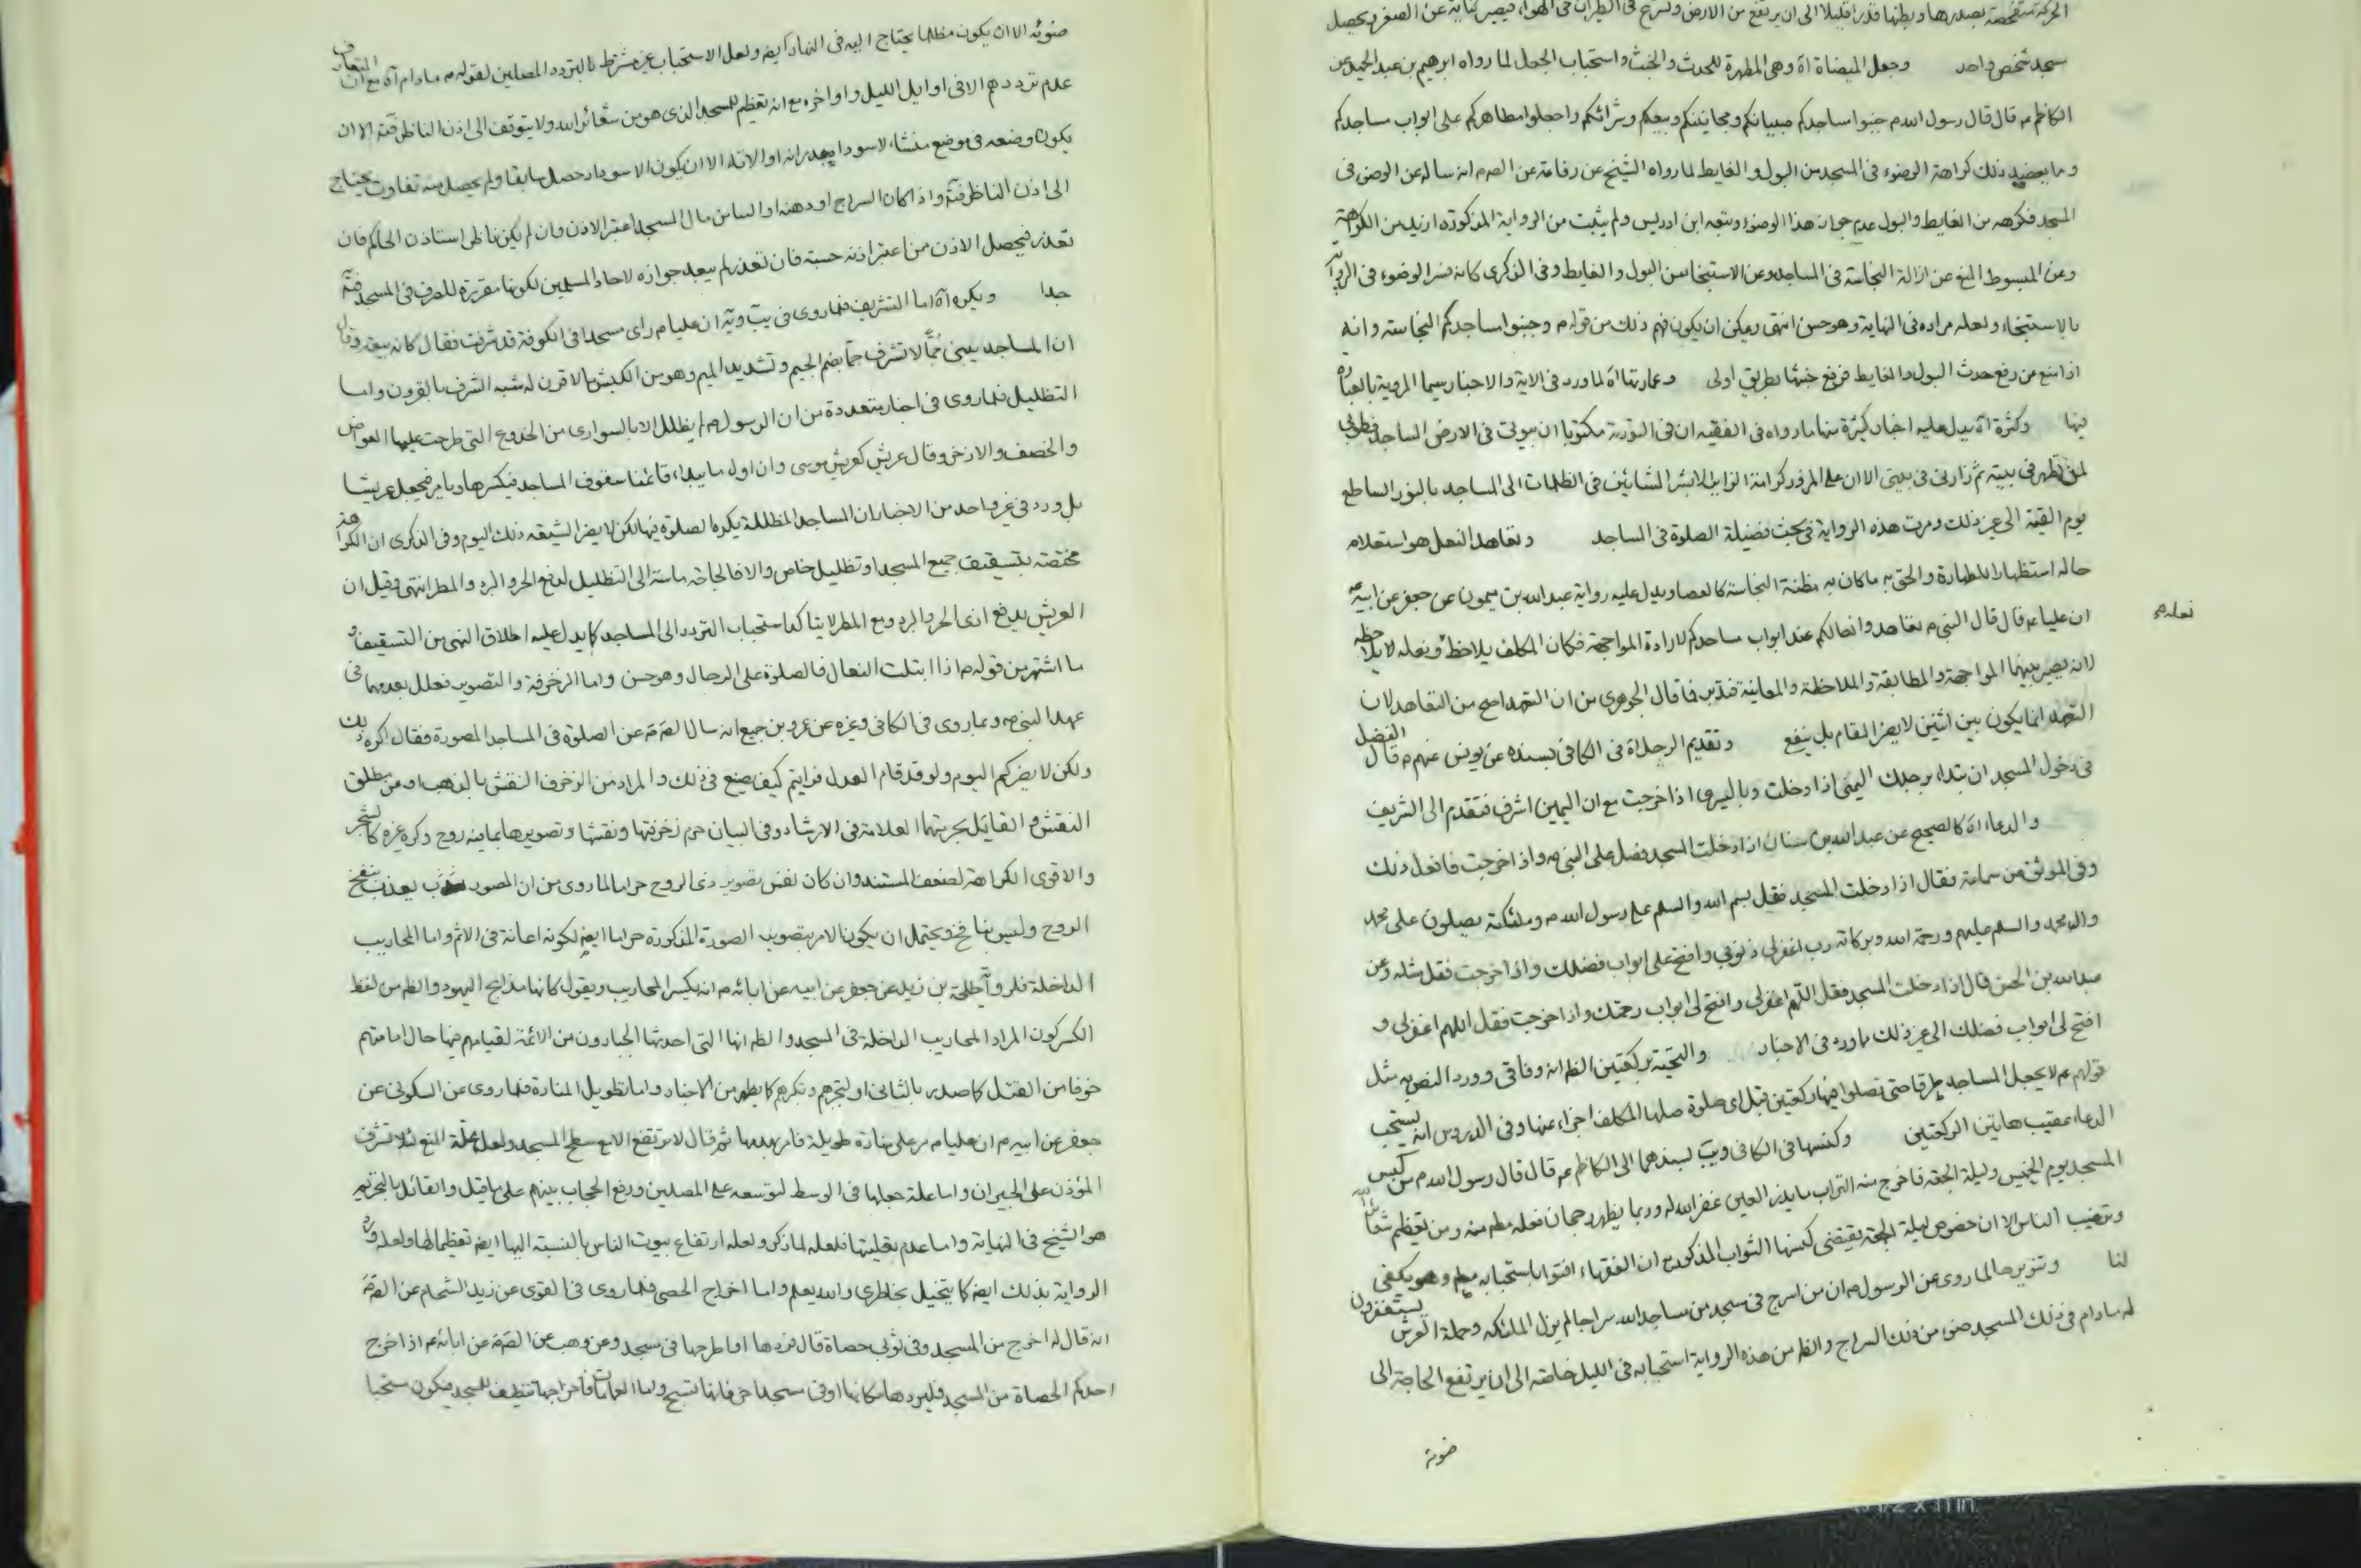 الحركة متفحصة بصدرها وبطنها قدرا قليلا الى ان يرتفع من الارض وتسرع فى الطيران فى الهوا، فيصير كناية عن الصغر ويحصل
مسجد شخص واحد وجعل الميضاة اه وهى المطهرة للحدث والخبث واستحباب الجعل لما رواه ابرهيم بن عبد الحميد عن
الكاظم ع قال قال رسول الله ص جنبوا مساجدكم صبيانكم ومجانينكم وبيعكم وشرائكم واجعلوا مطاهركم على ابواب مساجدكم
وما يعضد ذلك كراهة الوضوء فى المسجد من البول والغايط لما رواه الشيخ عن رفاعة عن الص م انه ساله عن الوضوء فى
المسجد فكرهه من الغايط والبول عدم جواز هذا الوضوء وتبعه ابن ادريس ولم يثبت من الرواية المذكورة ازيد من الكراهة
وعن المبسوط المنع عن ازالة النجاسة فى المساجد وعن الاستنجاء من البول والغايط وفى الذكرى كانه فسر الوضوء فى الرواية
بالاستنجاء ولعله مراده فى النهاية وهو حسن انتهى ويمكن ان يكون فهم ذلك من قوله م وجنبوا مساجدكم النجاسة وانه
اذا منع من رفع حدث البول والغايط فرفع خبثها بطريق اولى وعمارتها اه لما ورد فى الاية والاخبار سيما المروية بالعبارة
فيها وكثرة اه يدل عليه اخبار كثيرة منها ما رواه فى الفقيه ان فى التورية مكتوبا ان بيوتى فى الارض المساجد فطوبى
لمن تطهر فى بيته ثم زارنى فى بيتى الا ان على المزور كرامة الزاير الا بشر المشائين فى الظلمات الى المساجد بالنور الساطع
يوم القيمة الى غير ذلك ومرت هذه الرواية فى بحث فضيلة الصلوة فى المساجد وتعاهد النعل هو استعلام
حاله استظهارا للطهارة والحق به ما كان به مظنة النجاسة كالعصا ويدل عليه رواية عبد الله بن ميمون عن جعفر عن ابيه ع
ان عليا ع قال قال النبى م تعاهدوا نعالكم عند ابواب مساجدكم لارادة المواجهة فكان المكلف يلاحظ ونعله لا يلاحظه
نعله م
لانه يصير بينهما المواجهة والمطابقة والملاحظة والمعاينة فتدبر فما قال الجوهرى من ان التعهد افصح من التعاهد لان
التعهد انما يكون بين اثنين لا يضر المقام بل ينفع وتقديم الرجل اه فى الكافى بسنده عن يونس عنهم م قال الفضل
فى دخول المسجد ان تبتدا، برجلك اليمنى اذا دخلت وباليسرى اذا خرجت مع ان اليمين اشرف فتقدم الى الشريف
والدعاء اه كالصحيح عن عبد الله بن سنان اذا دخلت المسجد فصل على النبى ص واذا خرجت فافعل ذلك
وفى الموثق عن سماعة فقال اذا دخلت المسجد فقل بسم الله والسلم على رسول الله ص وملئكته يصلون على محمد
وال محمد والسلم عليهم ورحمة الله وبركاته رب اغفر لى ذنوبى وافتح على ابواب فضلك واذا خرجت فقل مثله وعن
عبد الله بن الحسن قال اذا دخلت المسجد فقل اللهم اغفر لى وافتح لى ابواب رحمتك واذا خرجت فقل اللهم اغفر لى و
افتح لى ابواب فضلك الى غير ذلك ما ورد فى الاخبار والتحية بركعتين الظ انه وفاقى وورد النص به مثل
قولهم ع لا يجعل المساجد طرقا حتى تصلوا فيها ركعتين قبل اى صلوة صلها المكلف اجزاء عنها وفى الدروس انه يستحب
الدعاء عقيب هاتين الركعتين وكنسها فى الكافى ويب بسندهما الى الكاظم ع قال قال رسول الله ص من كنس
المسجد يوم الخميس وليلة الجمعة فاخرج منه التراب ما يذر العين غفر الله له وربما يظهر رجحان فعله مط منه ومن تعظيم شعائر الله
وترغيب الناس الا ان خصوص ليلة الجمعة يقتضى كنسها الثواب المذكور مع ان الفقهاء افتوا باستحبابه مط وهو يكفى
لنا وتنويرها لما روى عن الرسول ص ان من اسرج فى مسجد من مساجد الله سراجا لم يزل الملئكة وحملة العرش يستغفرون
له ما دام فى ذلك المسجد ضوء من ذلك السراج والظ من هذه الرواية استحبابه فى الليل خاصة الى ان يرتفع الحاجة الى
ضوئه
ضوئه الا ان يكون مظلما يحتاج اليه فى النهار ايضا ولعل الاستحباب غير مشترط بالتردد المصلين لقوله ص ما دام اه مع ان المتعارف
عدم ترددهم الا فى اوايل الليل واواخره مع انه تعظيم للمسجد الذى هو من شعائر الله ولا يتوقف الى اذن الناظر فته الا ان
يكون وضعه فى موضع منشاء لاسوداد جدرانه او الاته الا ان يكون الاسوداد حصل سابقا ولم يحصل منه تفاوت يحتاج
الى اذن الناظر فته واذا كان السراج او دهنه او الباس من مال المسجد اعتبر الاذن وان لم يكن ناظر استاذن الحاكم فان
تعذر فيحصل الاذن ممن اعتبر اذنه حسبة فان تعذر لم يبعد جوازه لاحاد المسلمين لكونها مقررة للصرف فى المسجد فته
جدا ويكره اه اما التشريف فلما روى فى يب ويه ان عليا م راى مسجدا فى الكوفة قد شرفت فقال كانه بيعة وقال
ان المساجد يبنى جما لا تشرف جما بضم الجيم وتشديد الميم وهو من الكبش بالاقرن له شبه الشرف بالقرون واما
التظليل فلما روى فى اخبار متعددة من ان الرسول ص لم يظلل الا بالسوارى من الجذوع التى طرحت عليها العوارض
والخصف والاذخر وقال عريش كعريش موسى وان اول ما يبدا، قائمنا سقوف المساجد فيكسرها ويامر فيجعل عريشا
بل ورد فى غير واحد من الاخبار ان المساجد المظللة يكره الصلوة فيها لكن لا يضر الشيعة ذلك اليوم وفى الذكرى ان الكراهة
مختصة بتسقيف جميع المسجد او تظليل خاص والا فالحاجة ماسة الى التظليل لدفع الحر والبرد والمطر انتهى وقيل ان
العريش يدفع اذى الحر والبرد ومع المطر لا يتاكد استحباب التردد الى المساجد كما يدل عليه اطلاق النهى من التسقيف و
ما اشتهر من قوله ص اذا ابتلت النعال فالصلوة على الرحال وهو حسن واما الزخرفة والتصوير فعلل بعدمهما فى
عهد النبى ص وبما روى فى الكافى وغيره عن عمرو بن جميع انه سال الص م عن الصلوة فى المساجد المصورة فقال اكره ذلك
ولكن لا يضركم اليوم ولو قد قام العدل فرايتم كيف يصنع فى ذلك والمراد من الزخرف النقش بالذهب او من مطلق
النقش والقائل بحرمتهما العلامة فى الارشاد وفى البيان حرم زخرفتها ونقشها وتصويرها بما فيه روح وكره غيره كالشجر
والاقوى الكراهة لضعف المستند وان كان نفس تصوير ذى الروح حراما لما روى من ان المصور يعذب ينفخ
الروح وليس بنافخ ويحتمل ان يكون الامر بتصوير الصورة المذكورة حراما ايضا لكونه اعانة فى الاثم واما المحاريب
الداخلة فلرواية طلحة بن زيد عن جعفر عن ابيه عن ابائه م انه يكسر المحاريب ويقول كانها مذابح اليهود والظ من لفظ
الكسر كون المراد المحاريب الداخلة فى المسجد والظ انها التى احدثها الجبارون من الائمة لقيامهم فيها حال امامتهم
خوفا من القتل كما صدر بالثانى او لتجبرهم وتكبرهم كما يظهر من الاخبار واما تطويل المنارة فلما روى عن السكونى عن
جعفر عن ابيه م ان عليا م مر على منارة طويلة فامر بهدمها ثم قال لا يرتفع الا مع سطح المسجد ولعل علة المنع لئلا تشرف
المؤذن على الجيران واما علة جعلها فى الوسط لتوسعه على المصلين ورفع الحجاب بينهم على ما قيل والقائل بالتحريم
هو الشيخ فى النهاية واما عدم تعليتها فلعله لما ذكر ولعله ارتفاع بيوت الناس بالنسبة اليها ايضا تعظيما لها ولعله ورد
الرواية بذلك ايضا كما يتخيل بخاطرى والله يعلم واما اخراج الحصى فلما روى فى القوى عن زيد الشحام عن الص م
انه قال له اخرج من المسجد وفى ثوبى حصاة قال فردها او اطرحها فى مسجد وعن وهب عن الص م عن ابائه ع اذا اخرج
احدكم الحصاة من المسجد فليردها مكانها او فى مسجد اخر فانها تسبح واما القمامات فاخراجها تنظيف للمسجد فيكون مستحبا